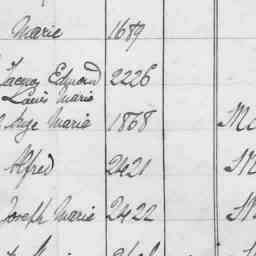 Marie 1689
Jacques Edmond 2226
Louis Marie
Ange Marie 1868 M
Alfred 2421 M
Joseph Marie 2422 M